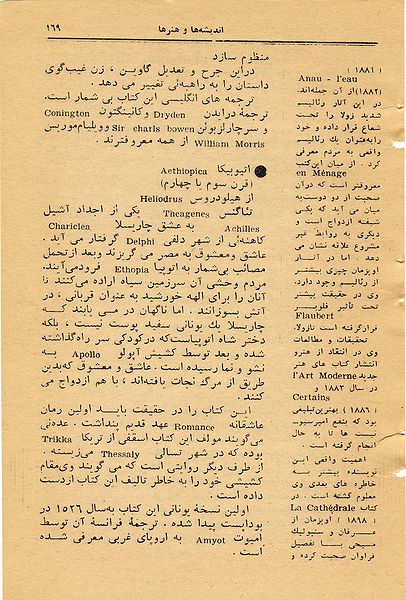 ۱۶۹
اندیشه‌ها و هنرها
منظوم سازد.
دراین جرح و تعدیل گاوین، زن غیب‌گوی
داستان را به راهبه‌ئی تغییر می دهد.
ترجمه های انگلیسی این کتاب بی شمار است.
ترجمه درایدن Dryden وکانینگتون Conington
و سرچارلزبوئن Sir charls bowen وویلیام‌موریس
William Morris از همه معروفترند.
اتیوپیکا Aethiopica
(قرن سوم یا چهارم)
از هیلودروس Heliodrus
تئاگنس Theagenes یکی از اجداد آشیل
Achilles به عشق چاریسلا Chariclea
کاهنه‌ئی از شهر دلفی Delphi گرفتار می آید.
عاشق ومعشوق به مصر می گریزند وبعد ازتحمل
مصائب بی‌شمار به اتوپیا Ethopia فرودمی‌آیند.
مردم وحشی آن سرزمین سیاه اراده می‌کنند تا
آنان را برای الهه خورشید به عنوان قربانی، در
آتش بسوزانند. اما ناگهان در می یابند که
چاریسلا یك یونانی سفید پوست نیست، بلکه
دختر شاه اتوپیاست‌که‌درکودکی سر راه‌گذاشته
شده و بعد توسط کشیش آپولو Apollo به
نشو و نما رسیده است. عاشق و معشوق که‌بدین
طریق از مرگ نجات یافته‌اند، با هم ازدواج می
کنند.
این کتاب را در حقیقت باید اولین رمان
عاشقانه Romance عهد قدیم پنداشت. عده‌ئی
می‌گویند مولف این کتاب اسقفی از تریکا Trikka
بوده که در شهر تسالی Thessaly می‌زیسته.
از طرف دیگر روایتی است که می گویند وی‌مقام
کشیشی خود را به خاطر تالیف این کتاب ازدست
داده است.
اولین نسخهٔ یونانی این کتاب به‌سال ۱۵۲۶ در
بوداپست پیدا شده. ترجمهٔ فرانسهٔ آن توسط
آمیوت Amyot به اروپای غربی معرفی شده
است.
(۱۸۸۱)
Anau - l'eau
(۱۸۸۲)از آن جمله‌اند.
در این آثار رئالیسم
شدید زولا را تحت
شعاع قرار داده و خود
رابه‌عنوان یك رئالیسم
واقعی به مردم معرفی
کرد. از میان این‌کتب
en Ménage
معروفتر است که درآن
صحبت از دو دوست‌به
میان می آید که یکی
شیفته ازدواج است و
دیگری به روابط غیر
مشروع علاقه نشان می
دهد. اما در آثار
اویزمان چیزی بیشتر
از رئالیسم وجود دارد.
وی در حقیقت بیشتر
تحت تأثیر فلوبـر
Flaubert
قرارگرفته است تازولا.
تحقیقات و مطالعات
وی در انتقاد از هنرو
انتشار کتاب های هنر
جدید l'Art Moderne
در سال ۱۸۸۳ و
Certains
(۱۸۸۶) بهترین‌تبلیغی
بود که بنفع امپرسیو‌‌ـ
نیست ها تا به حال
انجام گرفته است.
اهمیت واقعی این
نویسنده بیشتر به
خاطره های بعدی وی
معلوم گشته است. در
کتاب La Cathédrale
(۱۸۹۸) اویزمان از
عرفان و سنبولیك
مسیحی با تفصیل
فراوان صحبت کرده و